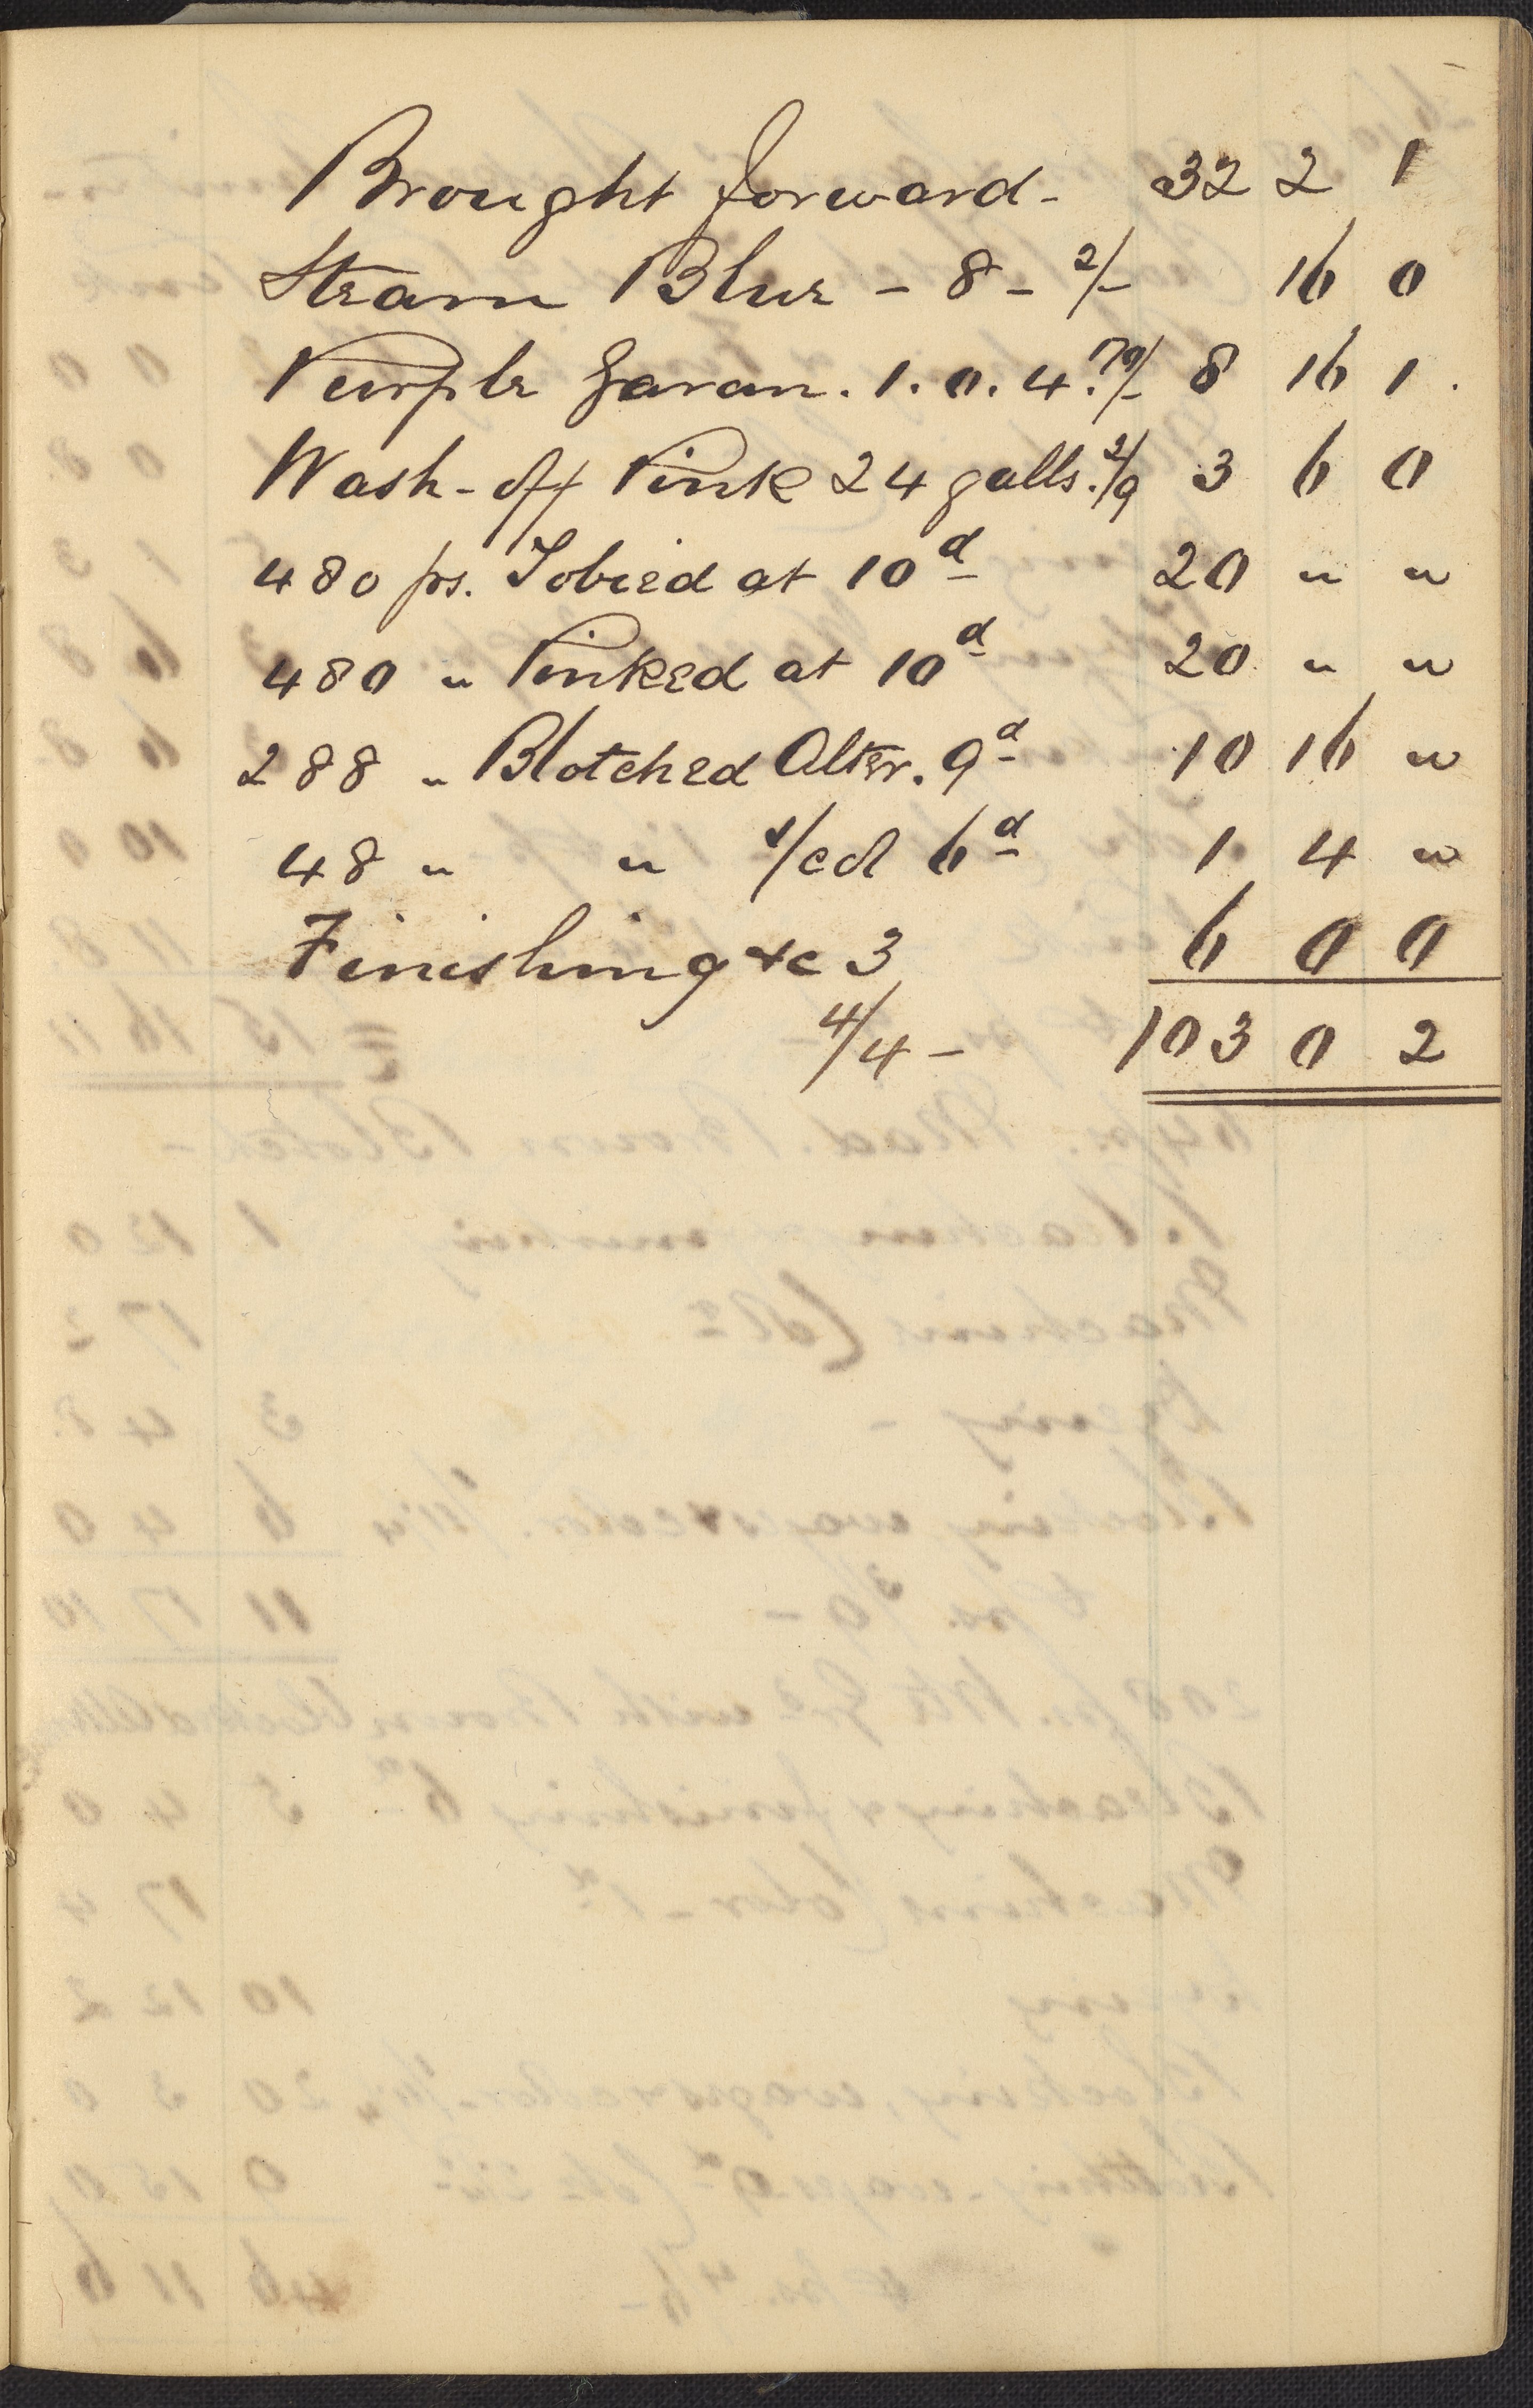 Brought forward - 32 2 1
Steam Blue - 8 - 2/- 16 0
Purple Garan. 1. 0. 4. 79/- 8 16 1.
Wash-off Pink 24 galls. 2/9 3 6 0
480 ps. Tobied at 10d 20 " "
480 " Pinked at 10d 20 " "
288 " Blotched Alter. 9d 10 16 "
48 " " 1/cd 6d 1 4 "
Finishing &c 3 6 0 0
4/4 - 103 0 2